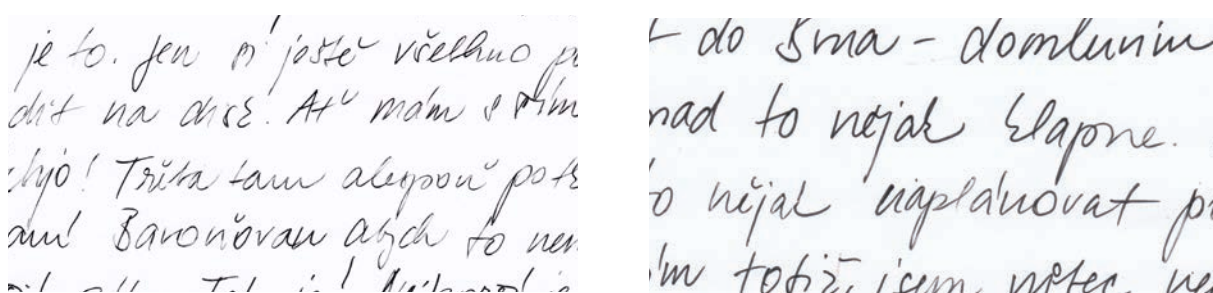 je to. Jen si ještě všechno p
dit na disk. Ať mám s ním
chjo! Třeba tam alespoň potk
aní Baroňovou abych to nem
t do Brna - domluvím
nad to nějak klapne.
o nějak naplánovat př
ím totiž, jsem vůbec ne